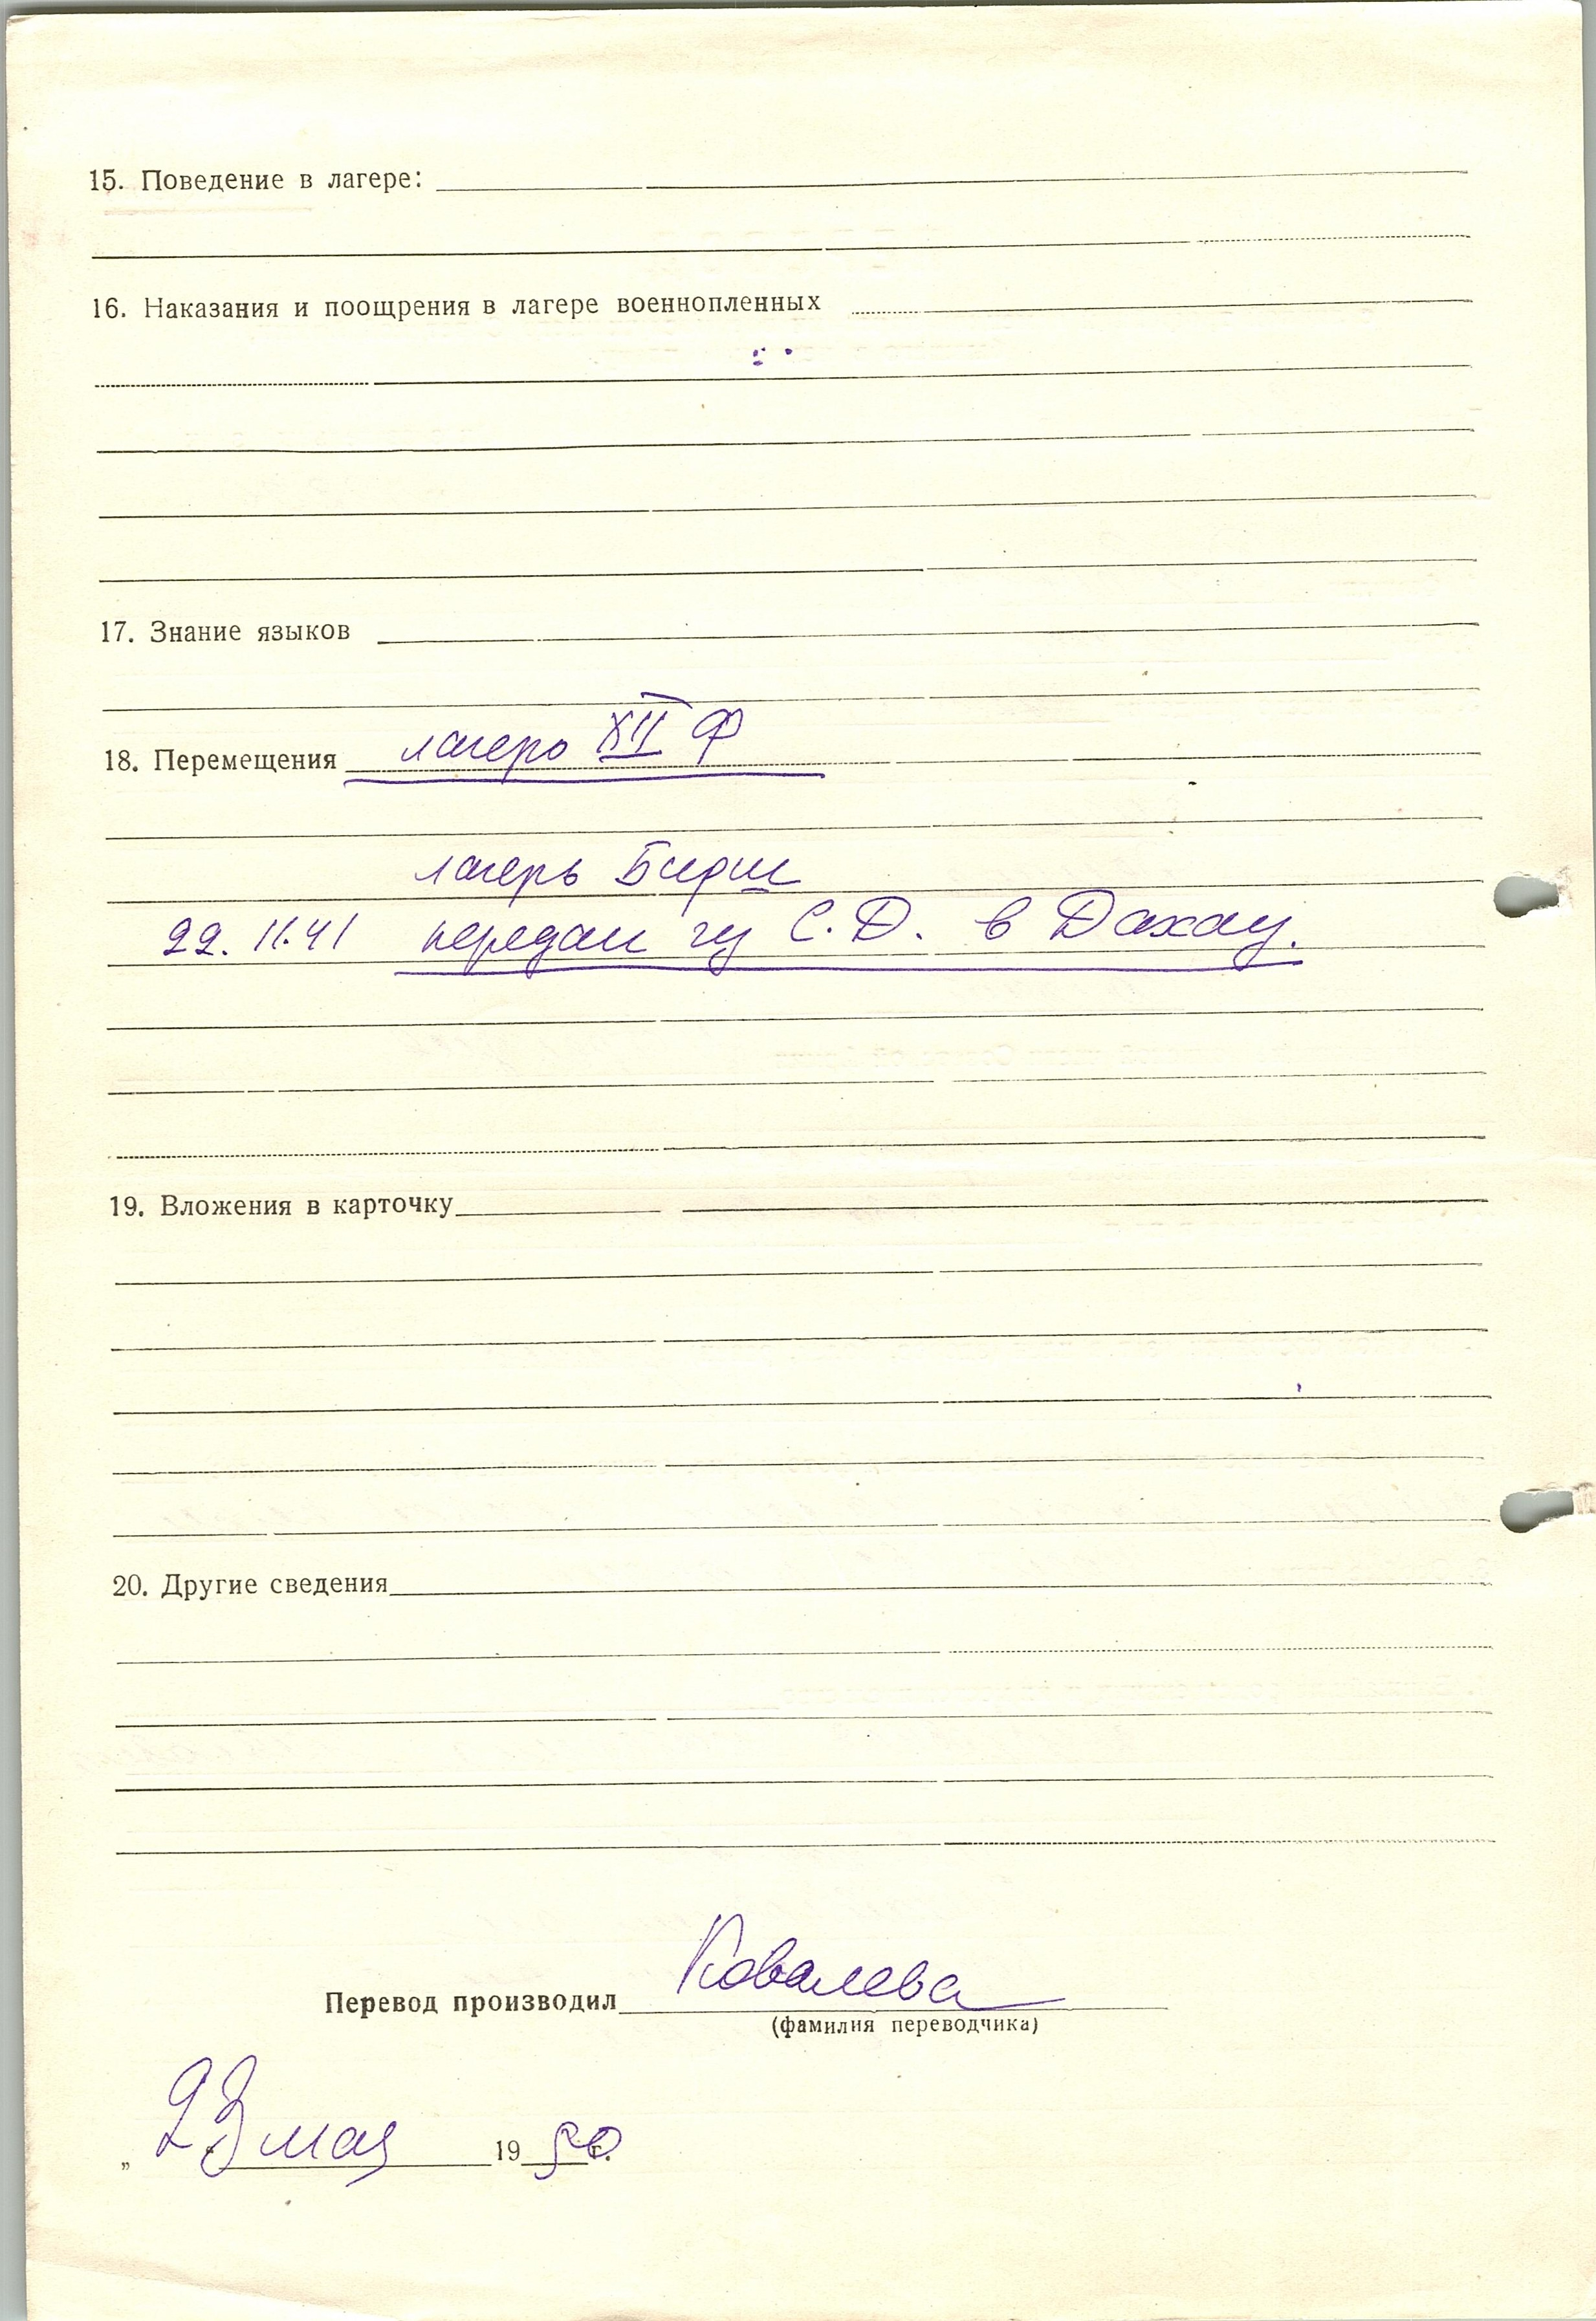 15. Поведение в лагере:
16. Наказания и поощрения в лагере военнопленных
17. Знание языков
18. Перемещения лагерь XII Ф
лагерь
22.11.41 передан гу С.Д. в Дахау.
19. Вложения в карточку
20. Другие сведения
Перевод производил Ковалева
(фамилия переводчика)
„23 мая 1950 г.